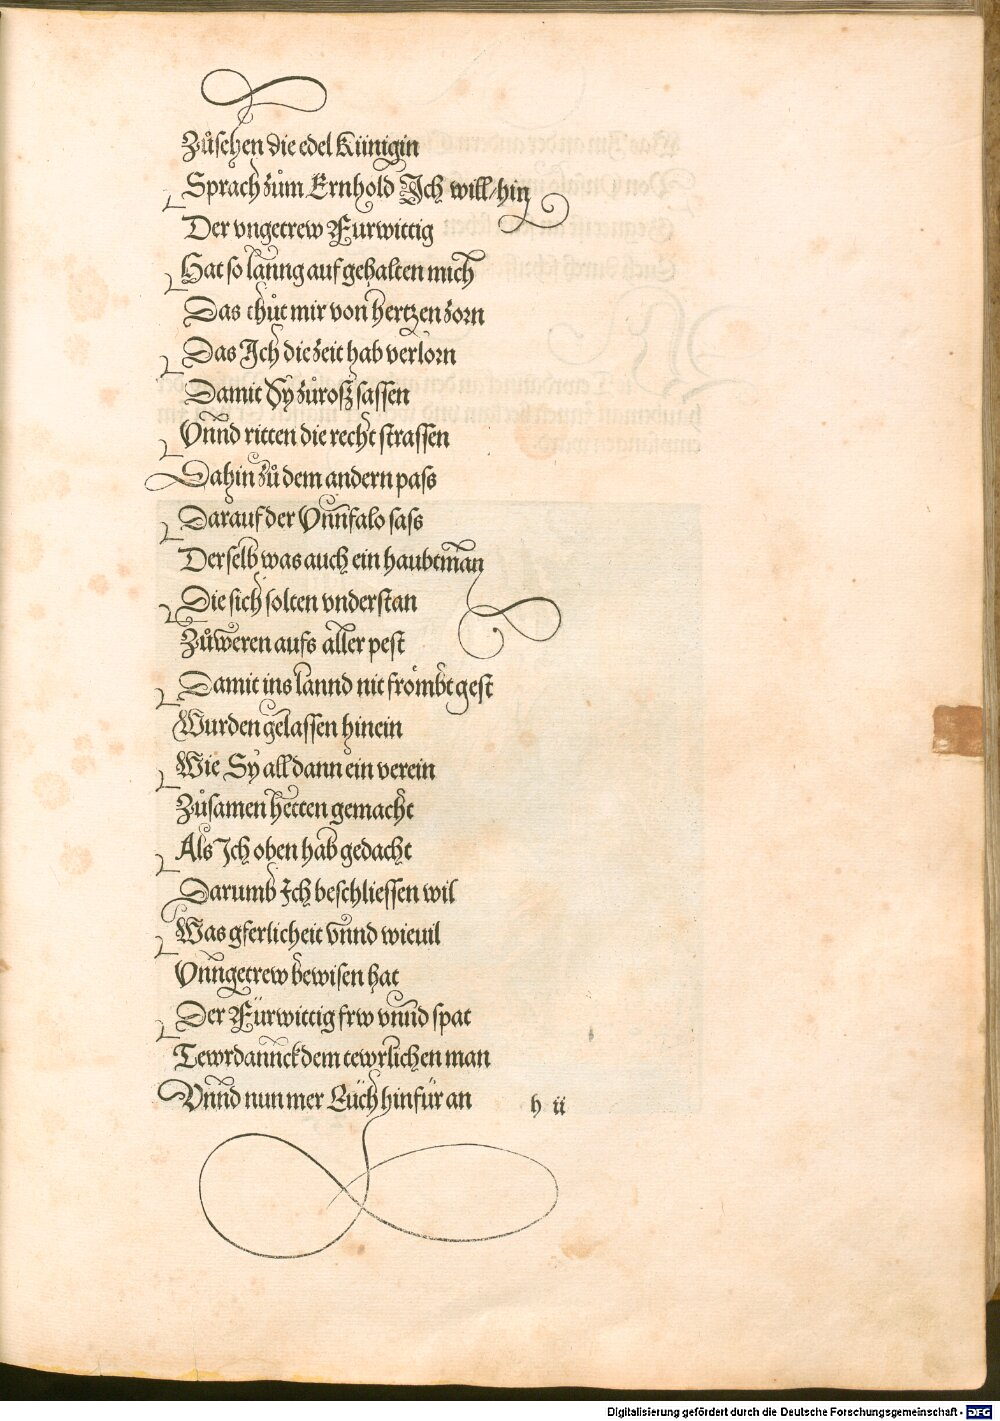 Zůsehen die edel Künigin
Sprach zům Ernhold Ich will/hin
Der vngetrew Furwittig
Hat so lanng auf gehalten mich
Das thůt mir von hertzen zorn
Das Ich die zeit hab verlorn
Damit Sy zů roß sassen
Vnnd ritten die recht strassen
Dahin zů dem andern pass
Darauf der Vnnfalo sass
Derselb was auch ein haubtman
Die sich solten vnderstan
Zůweren aufs aller pest
Damit ins lannd nit frömbt gest
Wurden gelassen hinein
Wie Sy all dann ein verein
Zůsamen hetten gemacht
Als Ich oben hab gedacht
Darumb Ich beschliessen wil
Was gferlicheit vnnd wieuil
Vnngetrew bewisen hat
Der Fürwittig frw vnnd spat
Tewrdannck dem tewrlichen man
Vnnd nun mer Eüch hinfür an
h ii
Digitalisierung gefördert durch die Deutsche Forschungsgemeinschaft - DFG